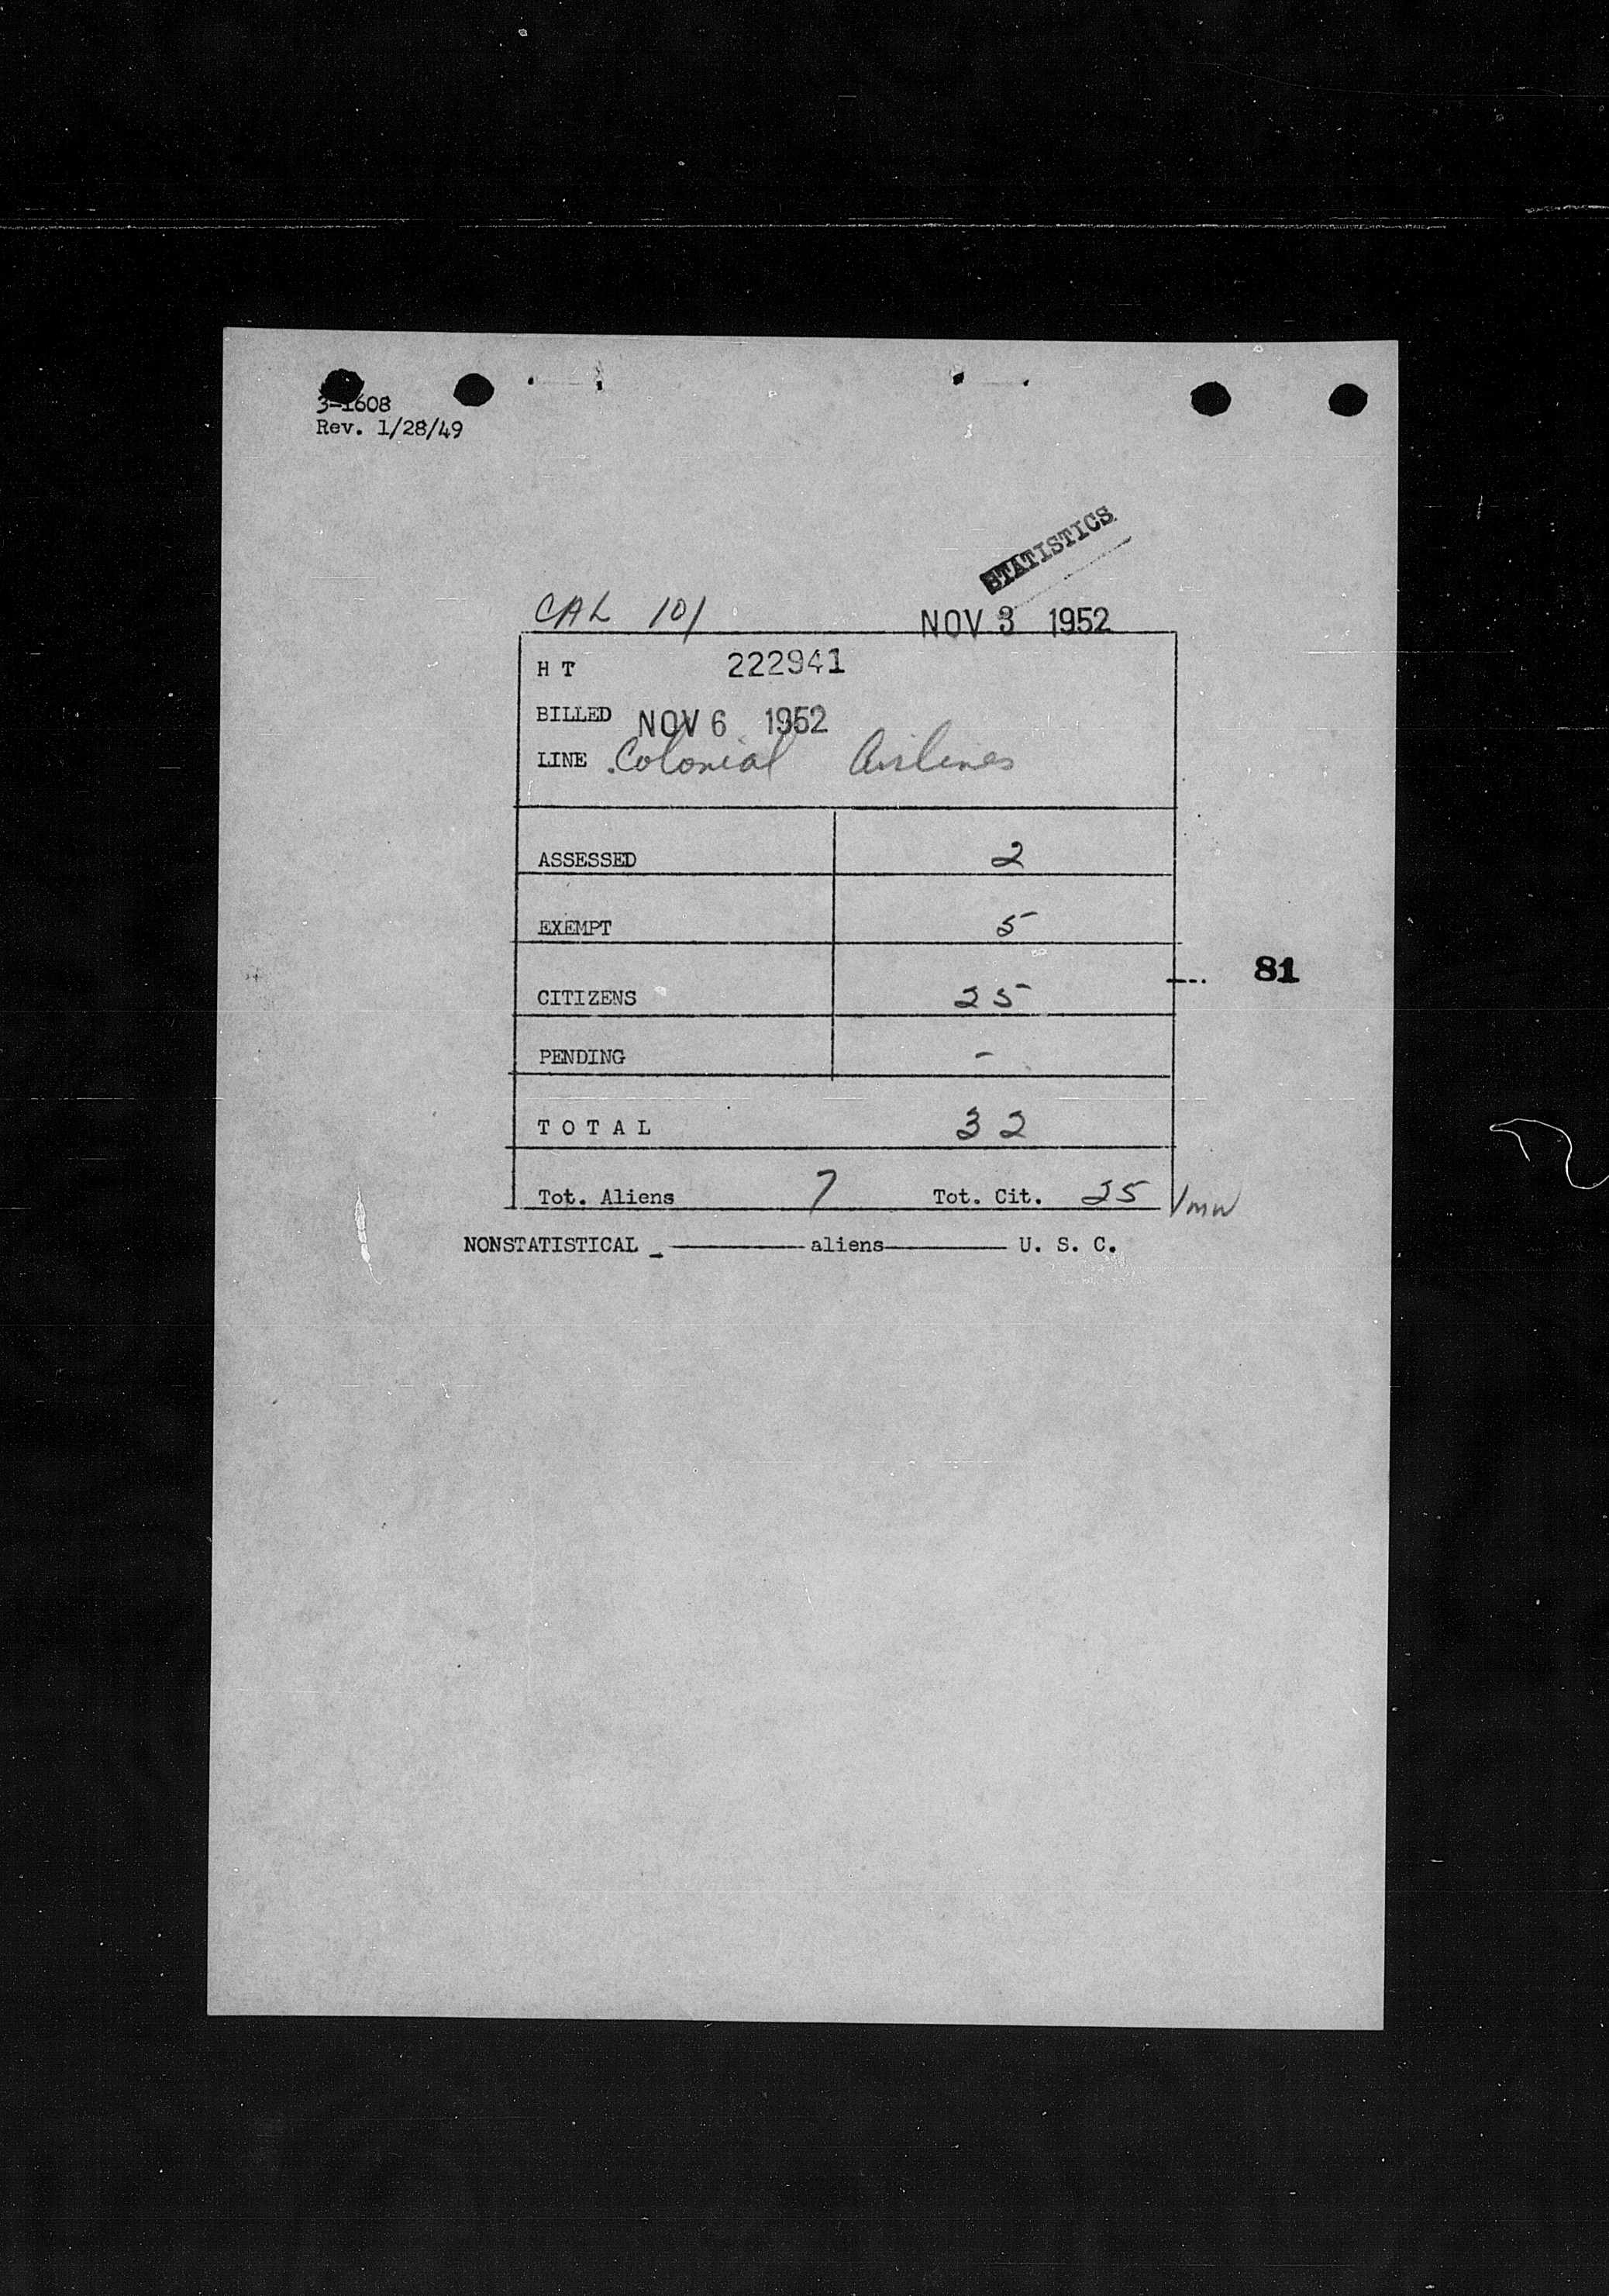 3-1608
Rev. 1/28/49
STATISTICS
CAL 101 NOV 3 1952
H T 222941
BILLED NOV 6 1952
LINE Colonial Airlines
ASSESSED 2
EXEMPT 5
81
CITIZENS 25
PENDING -
T O T A L 32
Tot. Aliens 7 Tot. Cit. 25
NONSTATISTICAL - aliens U. S. C.